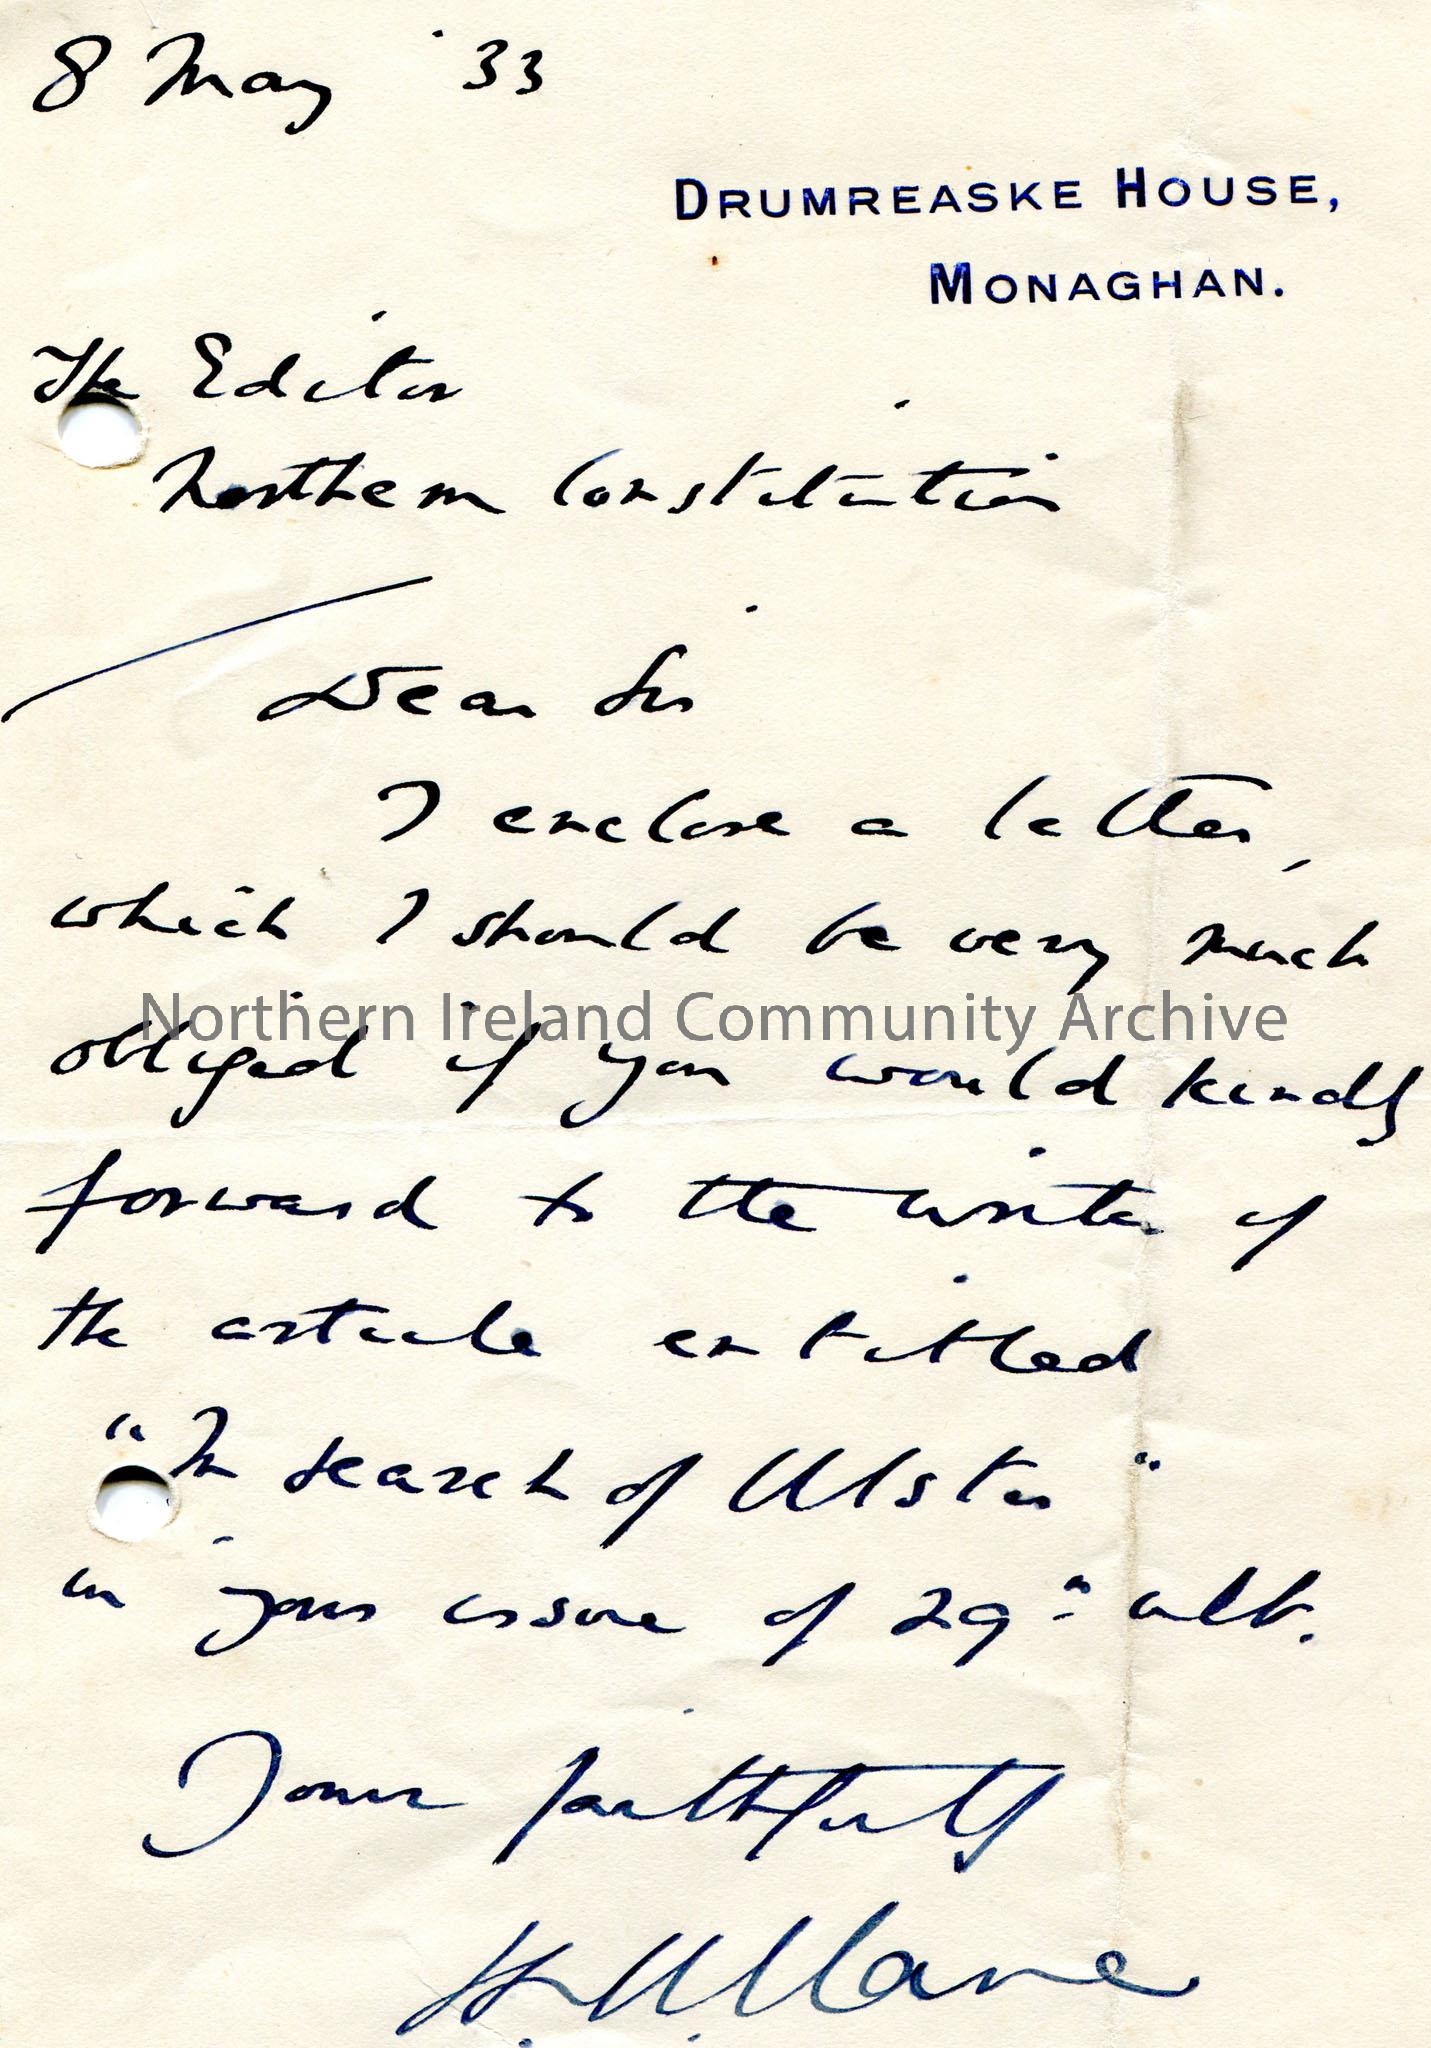 8 May '33
DRUMREASKE HOUSE,
MONAGHAN.
The Editor
Northern Constitution
Dear Sir
I enclose a letter,
which I should be very much
Northern Ireland Community Archive
obliged if you would kindly
forward to the writer of
the article entitled
"In search of Ulster"
in your issue of 29th ult.
Yours faithfully